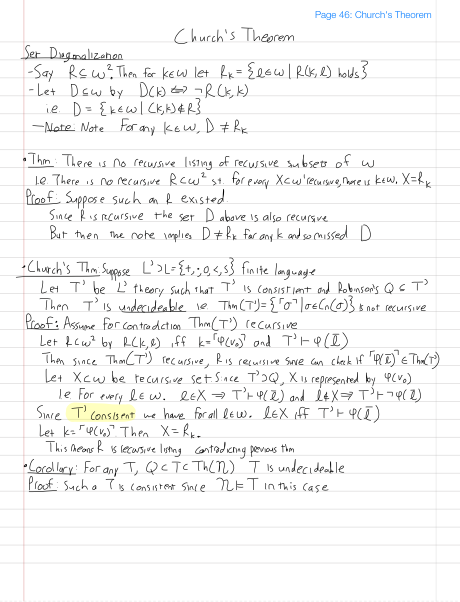 Page 46: Church's Theorem
Church's Theorem
Set Diagonalization
-Say R⊆ω². Then for k∈ω let R_k = {ℓ∈ω | R(k,ℓ) holds}
-Let D⊆ω by D(k) ⟺ ¬R(k,k)
i.e. D = {k∈ω | (k,k)∉R}
-Note Note For any k∈ω, D ≠ R_k
• Thm: There is no recursive listing of recursive subsets of ω
i.e. There is no recursive R⊂ω² st. for every X⊂ω recursive, there is k∈ω. X=R_k
Proof: Suppose such an R existed.
Since R is recursive the set D above is also recursive
But then the note implies D≠R_k for any k and so missed D
• Church's Thm: Suppose L'⊃L={+,·,0,<,s} finite language
Let T' be L' theory such that T' is consistent and Robinson's Q ⊆ T'
Then T' is undecideable i.e. Thm(T')={⌜σ⌝ | σ∈Cn(σ)} is not recursive
Proof: Assume for contradiction Thm(T') recursive
Let R⊂ω² by R(k,ℓ) iff k=⌜φ(v₀)⌝ and T'⊢φ(ℓ̅)
Then since Thm(T') recursive, R is recursive since can check if ⌜φ(ℓ̅)⌝∈Thm(T')
Let X⊂ω be recursive set Since T'⊃Q, X is represented by φ(v₀)
i.e For every ℓ∈ω. ℓ∈X ⟹ T'⊢φ(ℓ̅) and ℓ∉X ⟹ T'⊢¬φ(ℓ̅)
Since T' consistent we have for all ℓ∈ω. ℓ∈X iff T'⊢φ(ℓ̅)
Let k=⌜φ(v₀)⌝. Then X=R_k.
This means R is recursive listing contradicting previous thm
• Corollary: For any T, Q⊂T⊂Th(N) T is undecideable
Proof: Such a T is consistent since N⊨T in this case